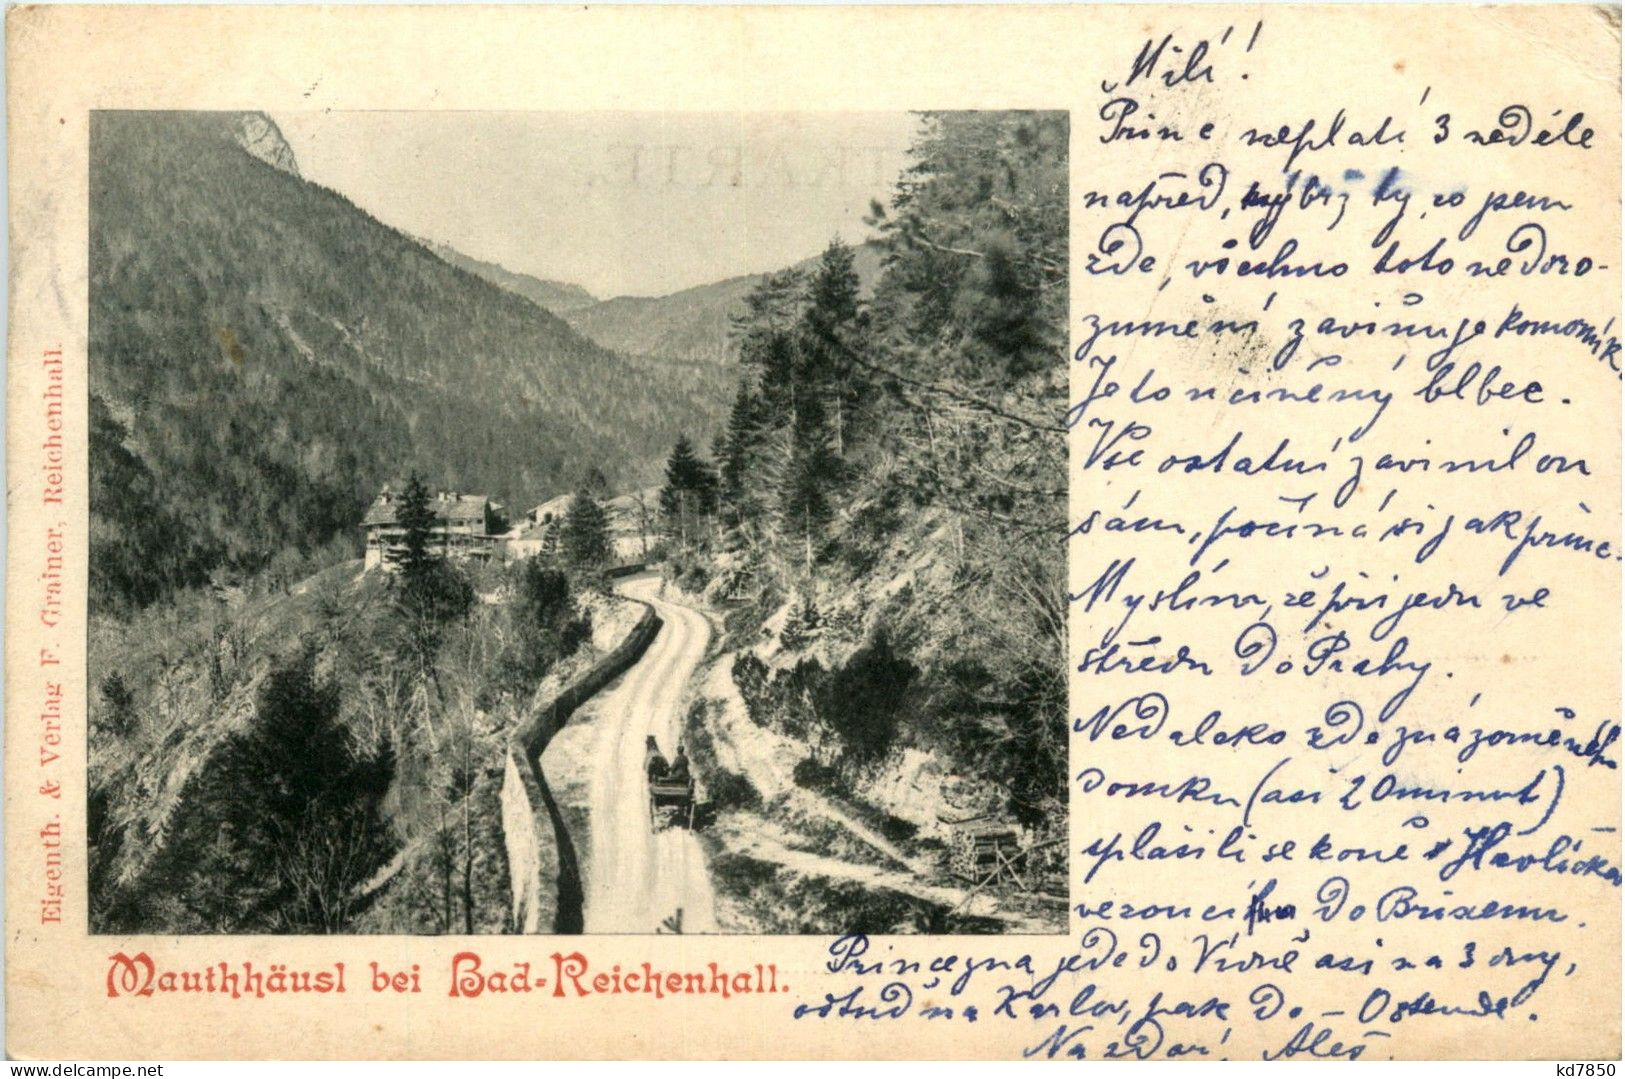 Milí!
Princ neplatí 3 neděle
napřed, nýbrž ty, co jsem
zde, všechno toto nedoro-
zumění zavinuje komorník.
Je to učiněný blbec.
Vše ostatní zavinil on
sám, počíná si jak princ.
Myslím, že přijedu ve
středu do Prahy.
Nedaleko zde znázorněného
domku (asi 20 minut)
splášili se koně s Havlíčka
vezoucího do Brixenu.
Princezna jede do Vídně asi na 3 dny,
odtud na Karlov, pak do – Ostende.
Na zdar! Aleš.
Eigenth. & Verlag F. Grainer, Reichenhall.
Mauthhäusl bei Bad-Reichenhall.
kd7850